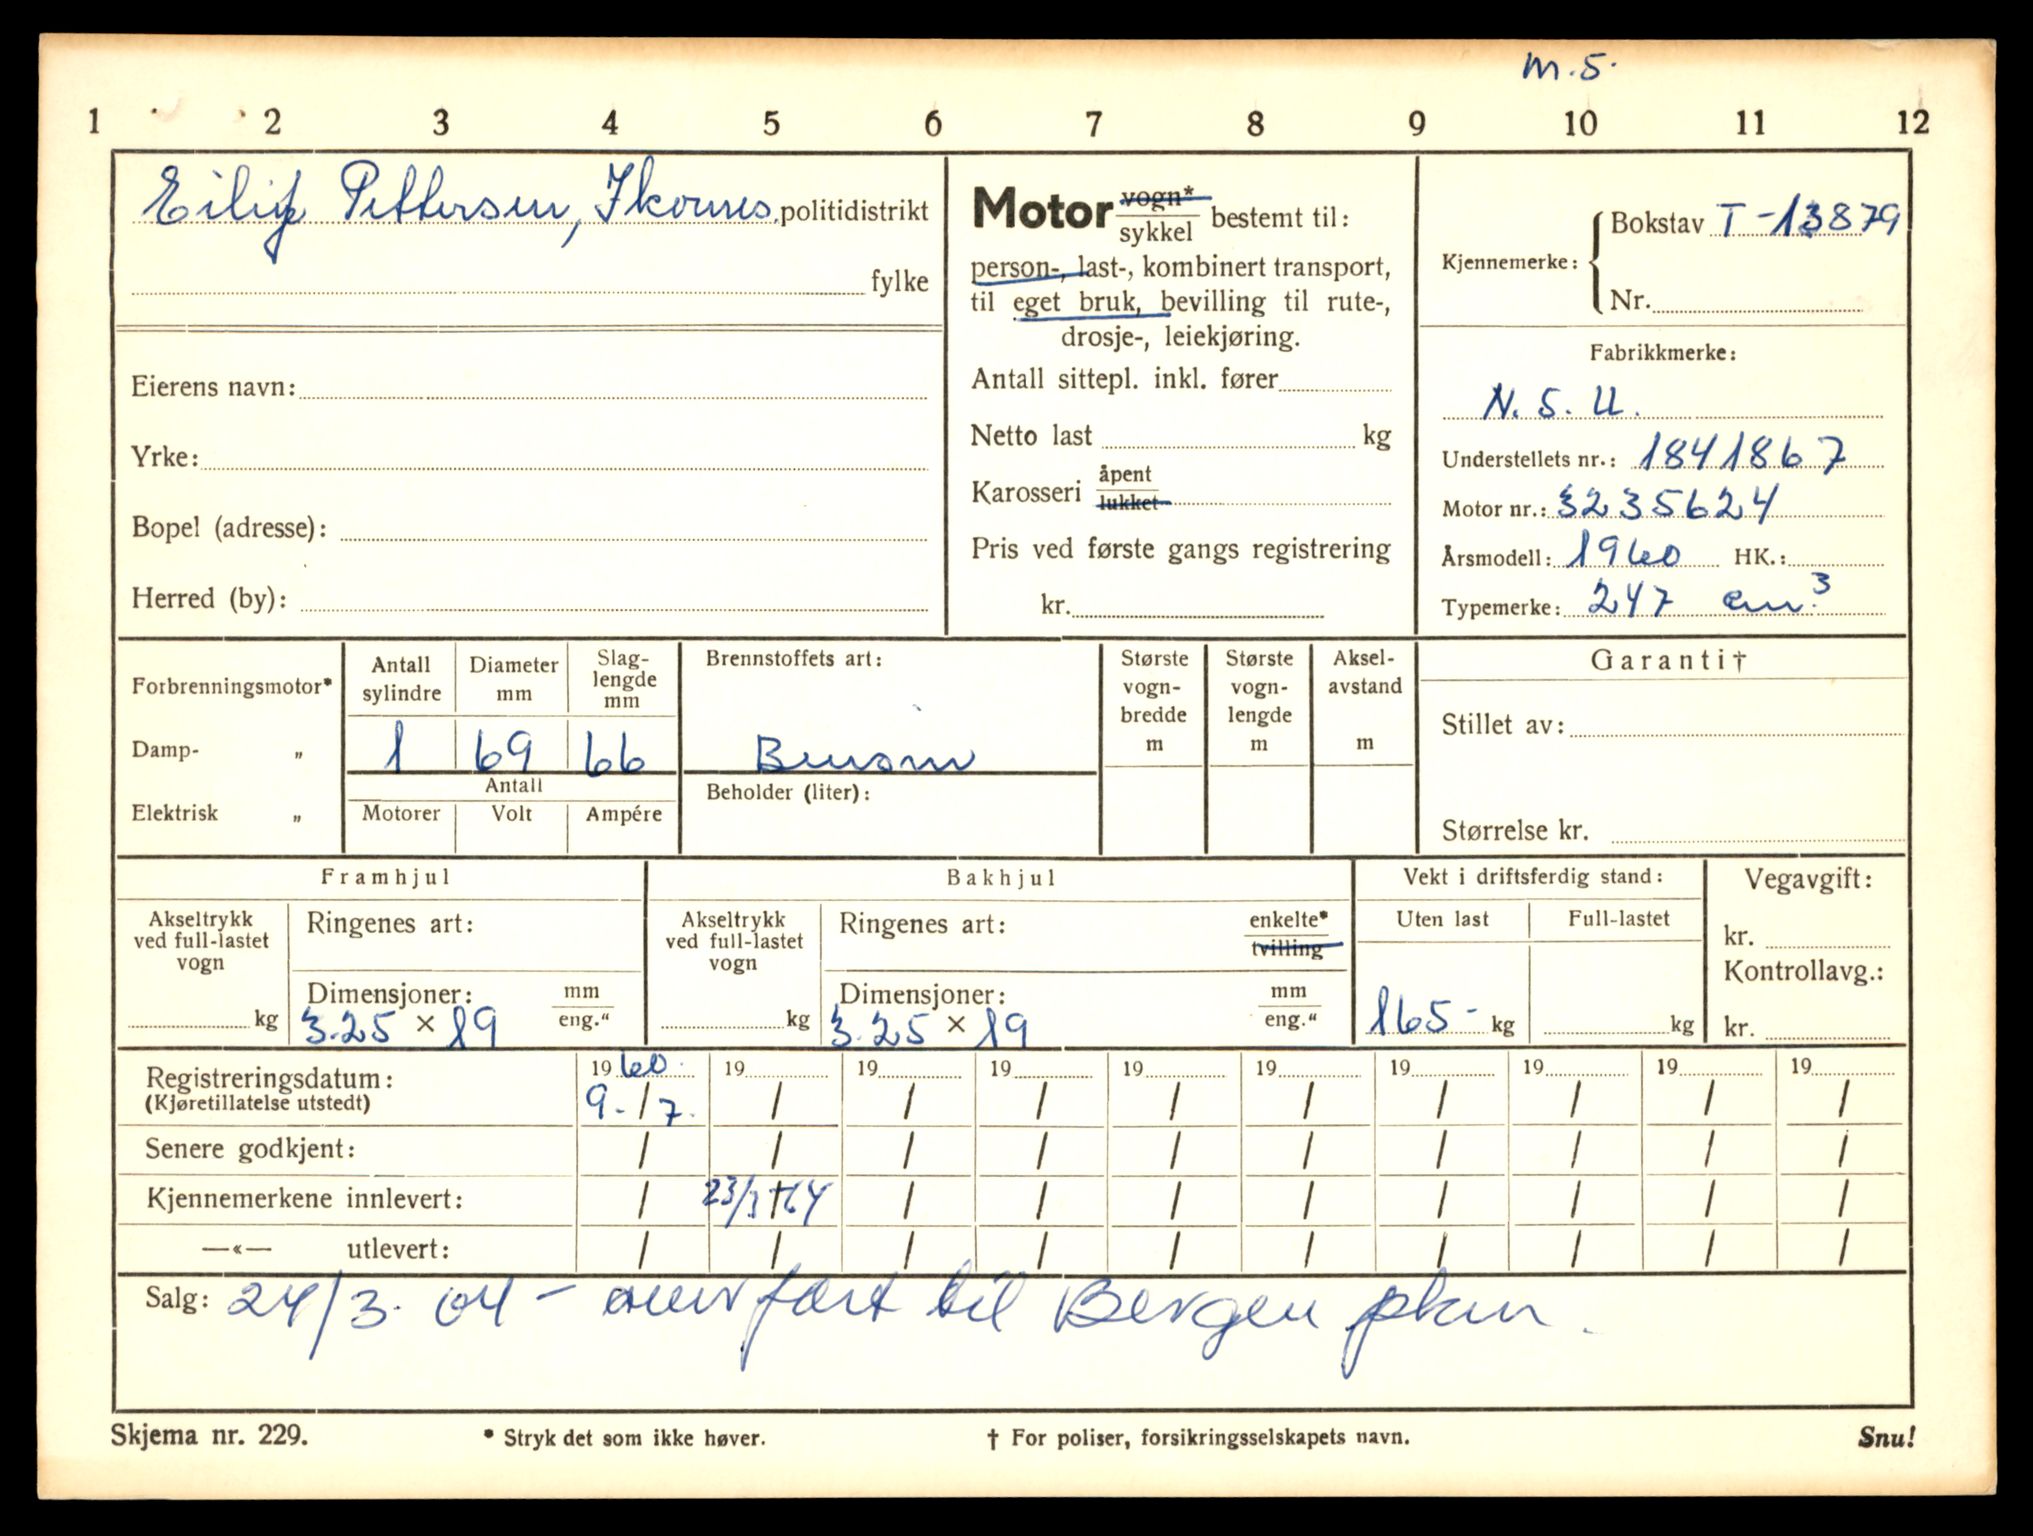 m.5.
1 2 3 4 5 6 7 8 9 10 11 12
Eilif Pettersen, Ikornes. politidistrikt
fylke
Eierens navn:
Yrke:
Bopel (adresse):
Herred (by):
Motor vogn* / sykkel bestemt til:
person-, last-, kombinert transport,
til eget bruk, bevilling til rute-,
drosje-, leiekjøring.
Antall sittepl. inkl. fører
Netto last kg
Karosseri åpent / lukket
Pris ved første gangs registrering
kr.
Kjennemerke: Bokstav T-13879
Nr.
Fabrikkmerke:
N.S.U.
Understellets nr.: 1841867
Motor nr.: 3235624
Årsmodell: 1960 HK.:
Typemerke: 247 cm.3
Forbrenningsmotor*
Damp- „
Elektrisk „
Antall sylindre
1
Diameter mm
69
Slag-lengde mm
66
Antall
Motorer Volt Ampére
Brennstoffets art:
Bensin
Beholder (liter):
Største vogn-bredde m
Største vogn-lengde m
Aksel-avstand m
Garanti†
Stillet av:
Størrelse kr.
Framhjul
Akseltrykk ved full-lastet vogn
kg
Ringenes art:
Dimensjoner: mm / eng.“
3.25 × 19
Bakhjul
Akseltrykk ved full-lastet vogn
kg
Ringenes art: enkelte* / tvilling
Dimensjoner: mm / eng.“
3.25 × 19
Vekt i driftsferdig stand:
Uten last Full-lastet
165- kg kg
Vegavgift:
kr.
Kontrollavg.:
kr.
Registreringsdatum: 1960. 19 19 19 19 19 19 19 19 19
(Kjøretillatelse utstedt) 9./7. / / / / / / / / /
Senere godkjent: / / / / / / / / / /
Kjennemerkene innlevert: / 23/3-64 / / / / / / / /
—«— utlevert: / / / / / / / / / /
Salg: 24/3. 64 - overført til Bergen pkm.
Skjema nr. 229. * Stryk det som ikke høver. † For poliser, forsikringsselskapets navn. Snu!